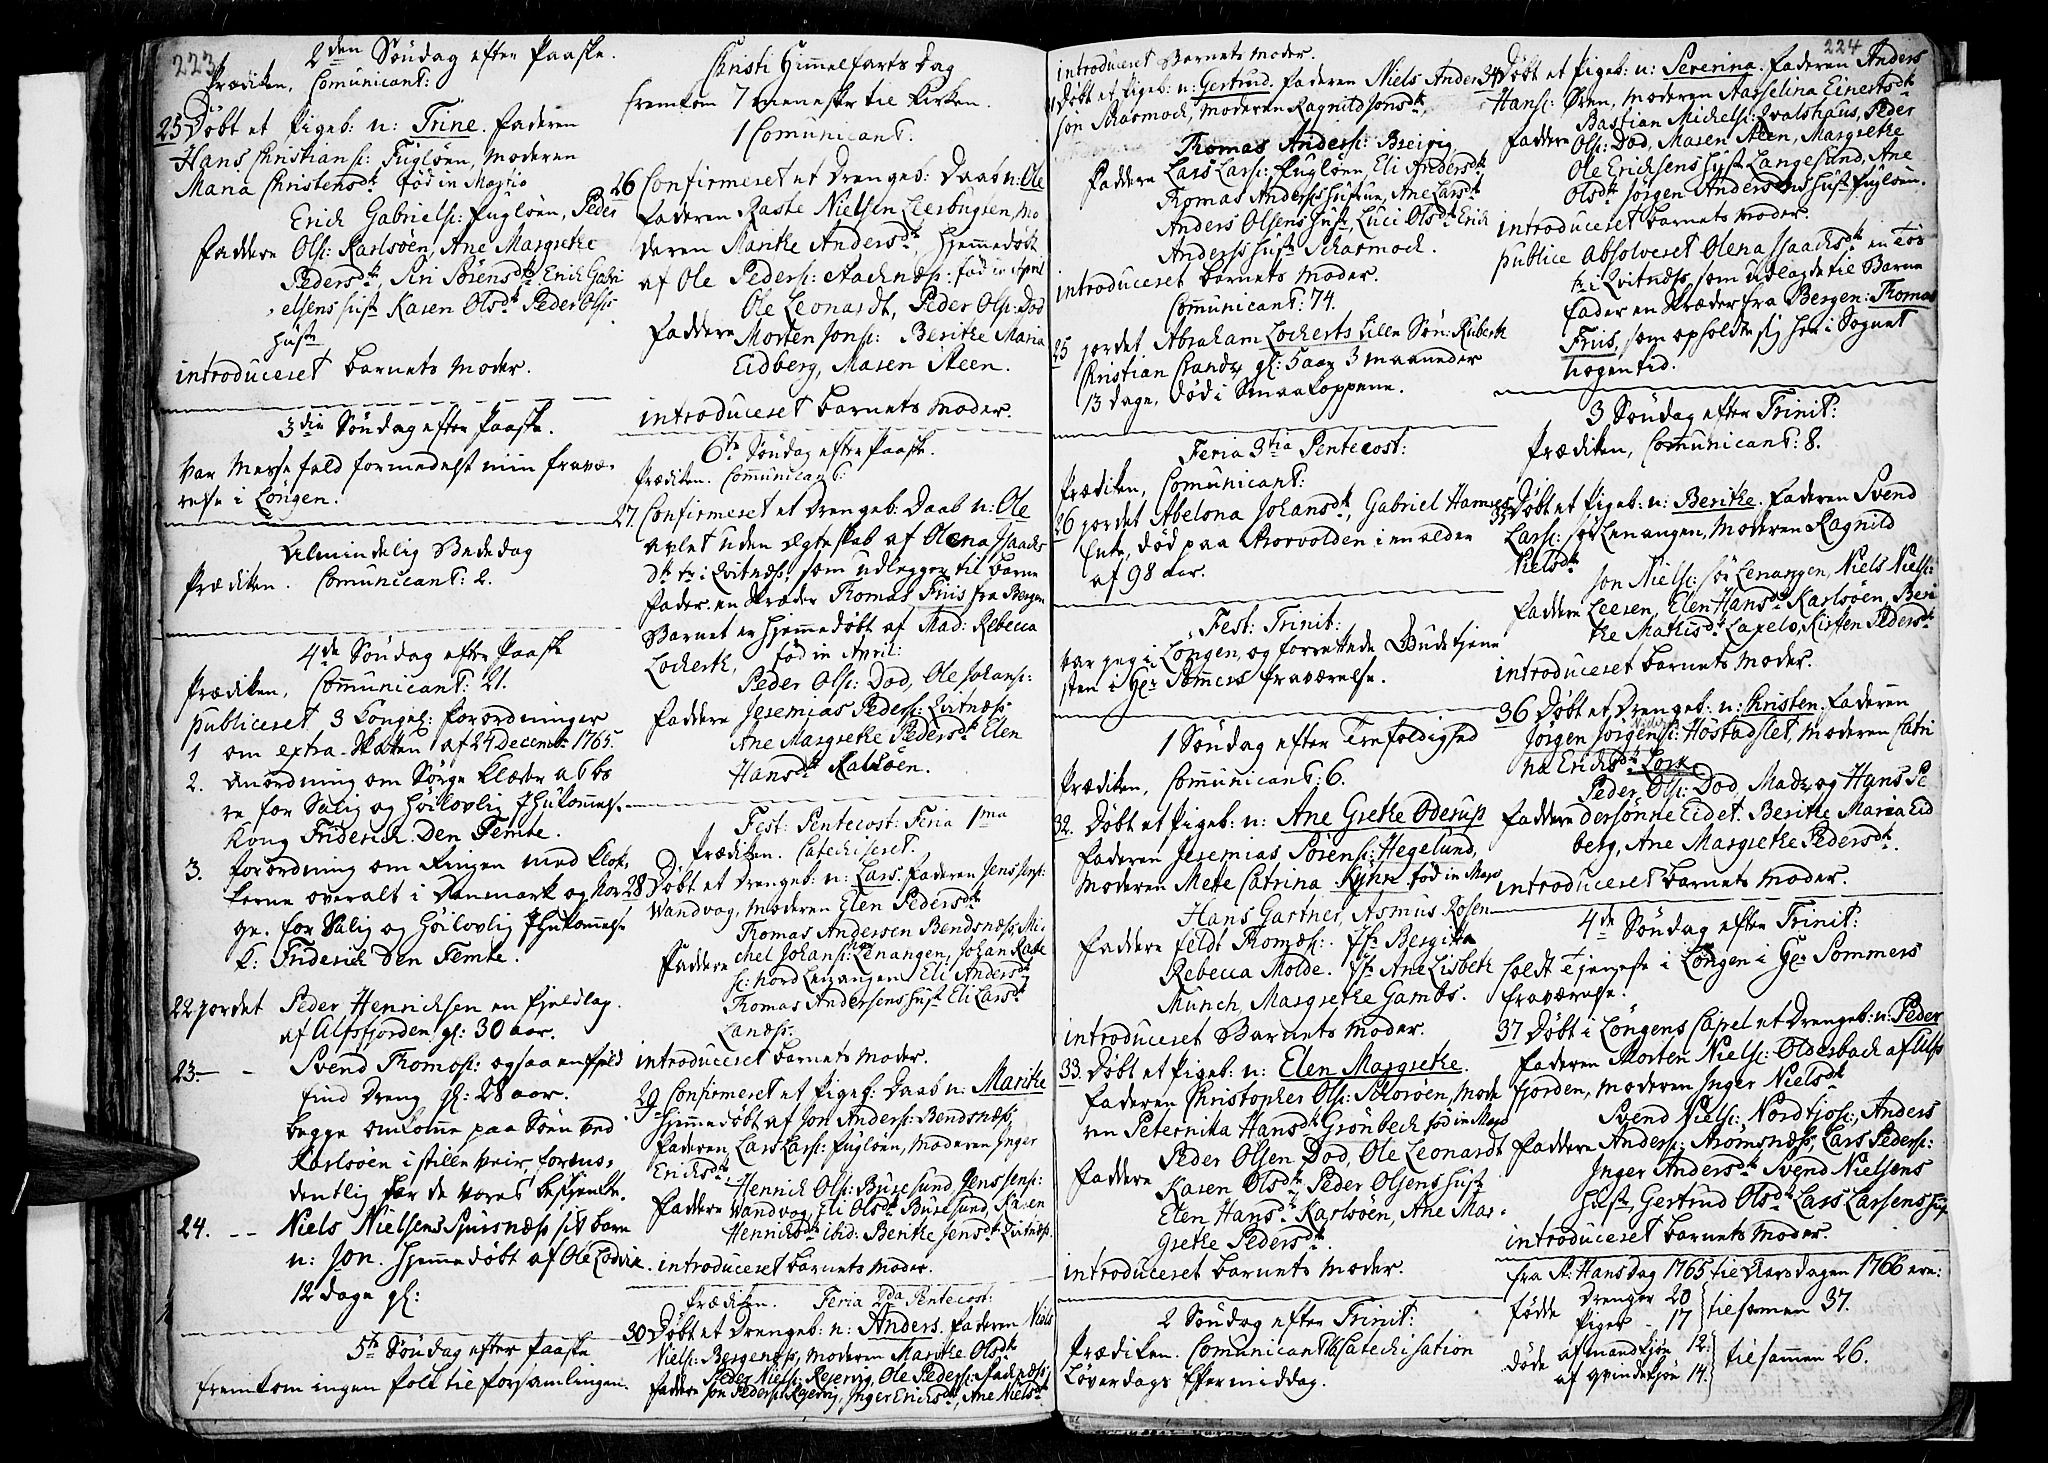 223
2den Søndag efter Paaske.
Prædiken, Comunicant:
25 Døbt et Pigeb: n: Trine. Faderen
Hans Christians: Fugløen, Moderen
Maria Christensdt. fød in Martio
Erich Gabriels: Fugløen, Peder
Faddere Ols: Karlsøen, Ane Margrethe
Pedersdt, Siri Sørensdt Erich Gabri
elsens hust Karen Olsdt Peder Olss:
hust
introduceret barnets Moder.
3die Søndag efter Paaske.
Var Messefald formedelst min fravæ-
relse i Lÿngen.
Almindelig Bededag
Prædiken. Comunicant: 2.
4de Søndag efter Paaske
Prædiken, Communicant: 21.
publiceret 3 Kongel: forordninger
1 om extra-Skatten af 24 Decemb: 1765.
2. Anordning om Sørge Klæder at bæ
re for Salig og Høilovlig Ihukommels.
Kong Friderich den Femte.
3. forordning om Ringen med Klok-
kerne overalt i Danmark og Nor
ge. for Salig og Høilovlig Ihukommelse
K: Friderich Den Femte.
22 jordet Peder Henrichsen en fieldlap.
af Ulfsfjorden. gl: 30 aar.
23. - - Svend Thomas: ogsaa en field
find Dreng gl: 28 aar.
begge omkomne paa Søen ved
Karlsøen i stille veir, formo-
dentlig har de været beskienkte.
24. - - Niels Nielsens Spursnæss sit barn
n: Jon. hjemmedøbt af Ole Lodvik.
12 dage gl:
5te Søndag efter Paaske
fremkom ingen folk til forsamlingen.
Christi Himmelfarts Dag
fremkom 7 mennesker til Kirken.
1 Comunicant:
26 Confirmeret et Drengeb: Daab n: Ole
Faderen Raske Nielsen Leerbugten, Mo
deren Marithe Andersdt, hjemmedøbt
af Ole Peders: Stachnæs: fød in April
Ole Leonardt, Peder Ols: Dod
Faddere Morten Jons: Berithe Maria
Eidberg, Maren Steen.
introduceret barnets Moder.
6te Søndag efter Paaske.
Prædiken. Communicant:
27. Confirmeret et Drengeb: Daab n: Ole
avlet uden Ægteskab af Olena Isaachs
dt tie i Qvitnæss, som udlegger til barne
fader: en Skræder Thomas Friis fra Bergen
Barnet er hjemmedøbt af Mad: Rebecca
Lockerth, fød in April:
Peder Ols: Dod, Ole Johans:
Faddere Jeremias Peders: Qvitnæss
Ane Margrethe Pedersdt Elen
Hansdt Karlsøen.
Fest: Pentecost: Feria 1ma
Prædiken. Catechiseret.
28 Døbt et Drengeb: n: Lars. Faderen Jens Jens:
Wandvog, Moderen Elen Pedersdt
Thomas Andersen Bendsnæss, Mi-
Faddere chel Johans: Lenangen, Johan Raste
s: Nord Lenangen Eli Andersdt
Thomas Andersens hust Eli Larsdt
Lanæss
introduceret barnets Moder.
29 Confirmeret et Pigeb: Daab n: Marithe
hjemmedøbt af Jon Anders: Bendsnæss.
Faderen, Lars Lars: Fugløen, Moderen Inger
Erichsdt
Henrich Ols: Burøesund Jens Jens:
Faddere Wandvog, Eli Olsdt Burøesund, Karen
Henrichsdt ibid: Berithe Jensdt Qvitnæss.
introduceret barnets Moder.
Prædiken. Feria 2da Pentecost:
30 Døbt et Drengeb: n: Anders. Faderen Niels
Niels: Bergenøss, Moderen Marithe Olsdt
Peder Niels: Reiervig, Ole Peders: Stachnæss
Faddere Jon Peders: Reiervig, Inger Erichsdt, Ane Nielsdt
introduceret Barnets Moder.
31 Døbt et Pigeb: n: Gertrud. Faderen Niels Ander
son Scharmoch, Moderen Ragnild Jonsdt,
Thomas Anders: Breivig
Faddere Lars Lars: Fugløen, Eli Andersdt
Thomas Anderss hustrue, Ane Larsdt
Anders Olsens hust, Luci Olsdt Erich
Anderss hust Scharmoch.
introduceret barnets Moder.
Communicant: 74.
25 jordet Abraham Lockerts lille Søn: Ruberth
Christian Brandt, gl: 5 aar 3 maaneder
13 dage, død i Smaakoppene.
Feria 3tia Pentecost:
Prædiken, Comunicant:
26 jordet Abelona Johansdt, Gabriel Hannes
Enke, død paa Skorvolden i en alder
af 98 aar.
Fest: Trinit:
var jeg i Lÿngen, og forrettede Gudstjene
sten i Hr Sommers fraværelse.
1 Søndag efter Trefoldighed
Prædiken, Communicant: 6.
32. Døbt et Pigeb: n: Ane Grethe Oderup
Faderen Jeremias Sørens: Hegelund,
Moderen Mete Catrina Kyhn fød in Majo
Hans Gartner, Asmus Rosen
Faddere feldt Thomæs:. Jfr Bergitta
Rebecca Molde. Jfr Ane Lisbeth
Munch, Margrethe Gambs.
introduceret Barnets Moder.
33. Døbt et Pigeb: n: Elen Margrethe.
Faderen Christopher Ols: Schorøen, Mode
ren Peternika Hansdt Grønbech fød in Majo
Peder Olsen Dod, Ole Leonardt
Faddere Karen Olsdt Peder Olsens hust
Elen Hansdt Karlsøen, Ane Mar-
grethe Pedersdt.
introduceret barnets Moder.
2 Søndag efter Trinit:
Prædiken. Comunicant: 16 Catechisation
Løverdags Eftermiddag.
224
34 Døbt et Pigeb: n: Severina. Faderen Anders
Hans: Øren, Moderen Aasselina Einertsdt
Bastian Michels: Qvalshaus, Peder
Faddere Ols: Dod, Maren Aben, Margrethe
Ole Erichsens hust Langesund, Ane
Olsdt Jørgen Andersens hust Fugløen.
introduceret barnets Moder.
publice absolveret Olena Isaachsdt en Tøs
tie i Qvitnæss, som udlagde til Barne
fader en Skræder fra Bergen: Thomas
Friis, som opholdt sig her i Sognet
nogen tid.
3 Søndag efter Trinit:
Prædiken, Comunicant: 8.
35 Døbt et Pigeb: n: Berithe. Faderen Svend
Lars: sør Lenangen, Moderen Ragnild
Nielsdt
Jon Niels: sør Lenangen, Niels Niels:
Faddere Leeren, Elen Hansdt Karlsøen, Beri
the Mathisdt Laxelv, Kirsten Pedersdt
introduceret barnets Moder.
36 Døbt et Drengeb: n: Christen. Faderen
Jørgen Jørgens: Høstadslet, Moderen Catri
na Erichsdt Lork
Peder Ols: Dod, Madz og Hans Pe
Faddere dersønne Eidet. Berithe Maria Eid
berg, Ane Margrethe Pedersdt.
introduceret barnets Moder.
4de Søndag efter Trinit:
holdt Tjeneste i Lÿngen i Hr Sommers
fraværelse.
37 Døbt i Lÿngens Capel et Drengeb: n: Peder
Faderen Morten Niels: Oldersbach af Ulfs
fjorden, Moderen Inger Nielsdt
Svend Niels: Nordkios:, Anders
Faddere Anders: Aromsnæss, Lars Peders:
Inger Andersdt Svend Nielsens
hust, Gertrud Olsdt Lars Larsens hust
introduceret barnets Moder.
fra St: Hans dag 1765 til Aarsdagen 1766 ere:
fødde Drenger 20
Piger - 17 } tilsamen 37.
døde af mandkiøn 12.
af qvindekiøn 14. } tilsammen 26.